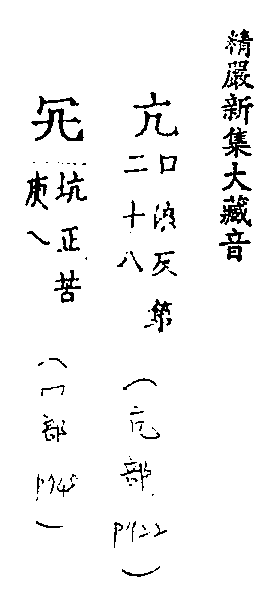 精嚴新集大藏音
亢
口浪反第
二十八
(亢部 P922)
坑正苦
庚乀
(冖部 P745)